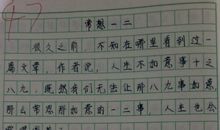 47
常想一二
很久之前，不知在哪里看到过一
篇文章，作者说，人生不如意事十之
八九，既然我们无法让那八九事如意，
那么常思那如意的一二事，人生也会